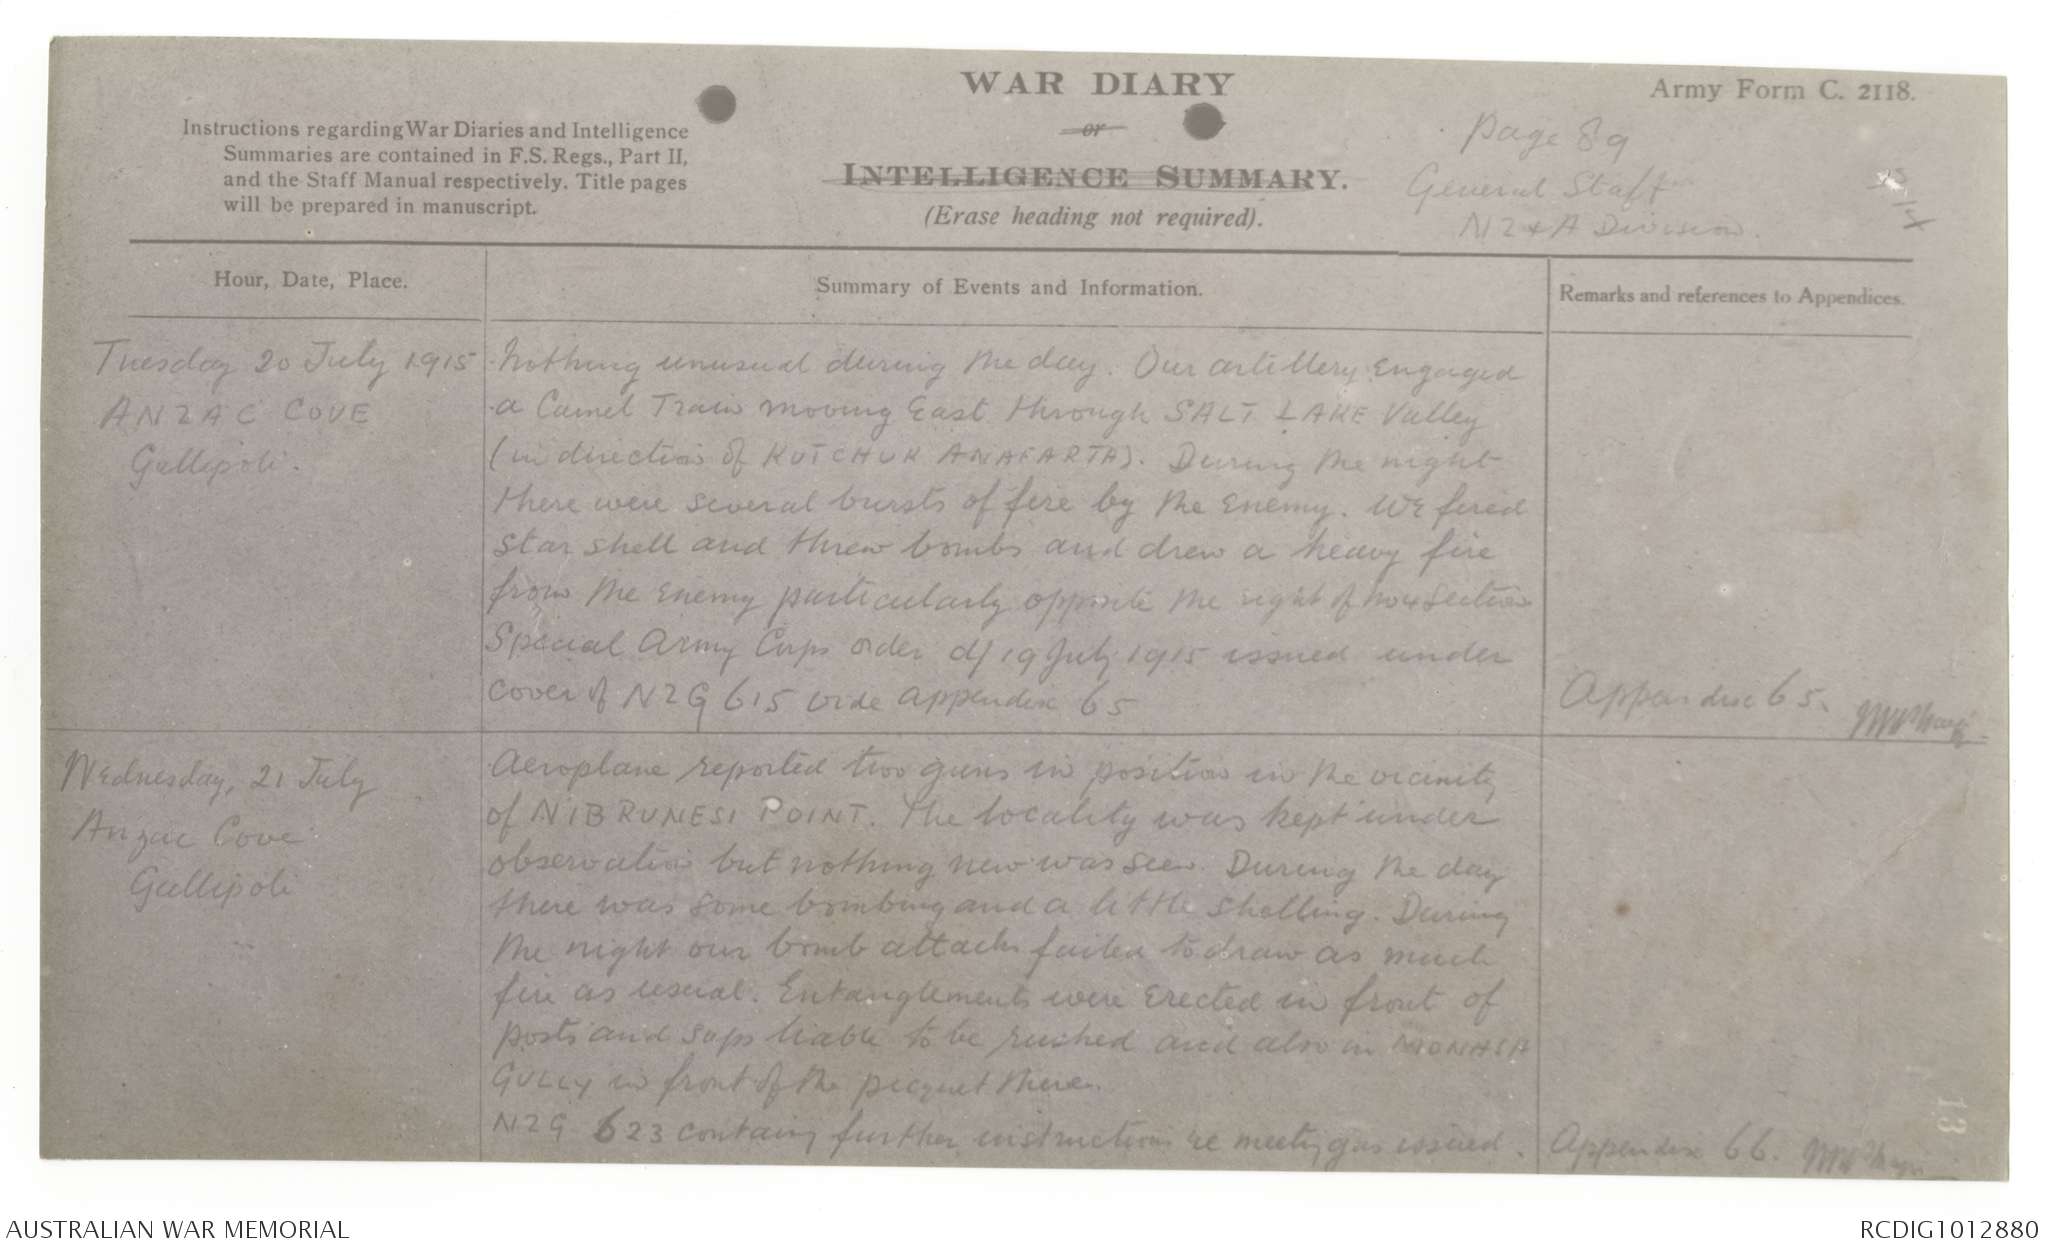 WAR DIARY
or
INTELLIGENCE SUMMARY.
(Erase heading not required).
Army Form C. 2118.
Instructions regarding War Diaries and Intelligence
Summaries are contained in F.S. Regs., Part II,
and the Staff Manual respectively. Title pages
will be prepared in manuscript.
Page 89
General Staff
NZ & A Division.
Hour, Date, Place.
Summary of Events and Information.
Remarks and references to Appendices.
Tuesday 20 July 1915
ANZAC COVE
Gallipoli.
Nothing unusual during the day. Our artillery engaged
a Camel Train moving East through SALT LAKE Valley
(in direction of KUTCHUK ANAFARTA). During the night
there were several bursts of fire by the enemy. We fired
star shell and threw bombs and drew a heavy fire
from the enemy particularly opposite the right of No 4 Section
Special Army Corps order d/ 19 July 1915 issued under
cover of NZG 615 vide appendix 65
Appendix 65.
Wednesday, 21 July
Anzac Cove
Gallipoli
Aeroplane reported two guns in position in the vicinity
of NIBRUNESI POINT. The locality was kept under
observation but nothing new was seen. During the day
there was some bombing and a little shelling. During
the night our bomb attacks failed to draw as much
fire as usual. Entanglements were erected in front of
posts and saps liable to be rushed and also in MONASH
GULLY in front of the picquet there.
NZG 623 containg further instructions re meetg gas issued.
Appendix 66.
13
AUSTRALIAN WAR MEMORIAL
RCDIG1012880